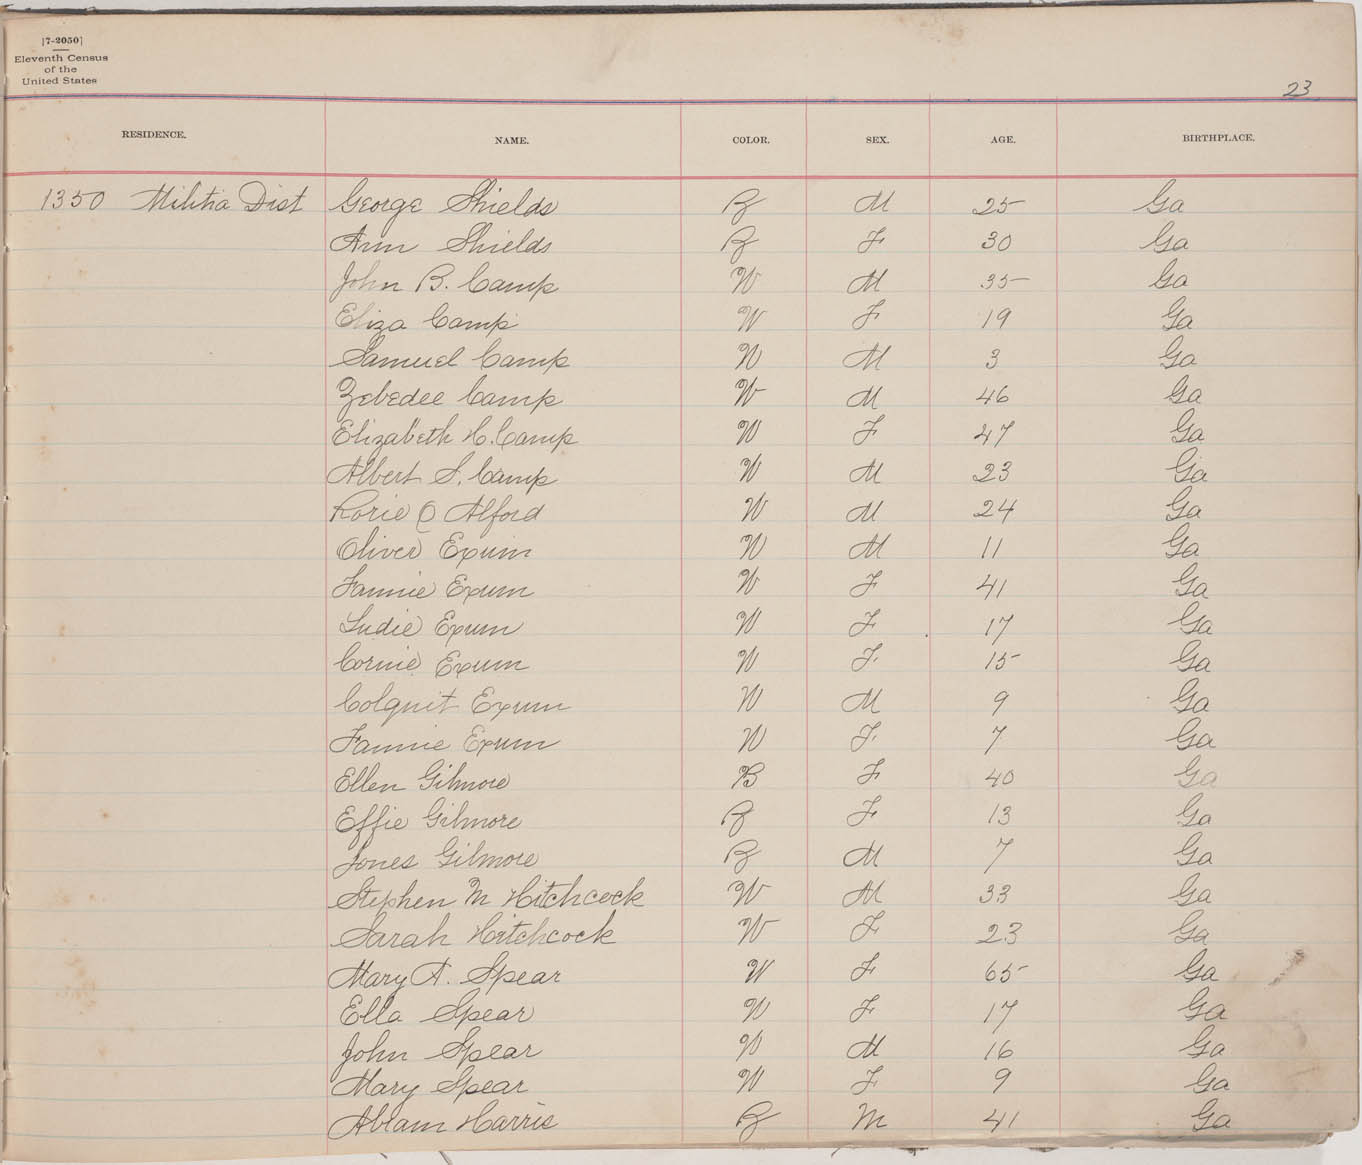 [7-2050]
Eleventh Census
of the
United States
23
RESIDENCE. NAME. COLOR. SEX. AGE. BIRTHPLACE.
1350 Militia Dist George Shields B M 25 Ga
Ann Shields B F 30 Ga
John B. Camp W M 35 Ga
Eliza Camp W F 19 Ga
Samuel Camp W M 3 Ga
Zebedee Camp W M 46 Ga
Elizabeth H. Camp W F 47 Ga
Albert S. Camp W M 23 Ga
Rorie O Alford W M 24 Ga
Oliver Exum W M 11 Ga
Fannie Exum W F 41 Ga
Ludie Exum W F 17 Ga
Cornie Exum W F 15 Ga
Colquit Exum W M 9 Ga
Fannie Exum W F 7 Ga
Ellen Gilmore B F 40 Ga
Effie Gilmore B F 13 Ga
Jones Gilmore B M 7 Ga
Stephen M Hitchcock W M 33 Ga
Sarah Hitchcock W F 23 Ga
Mary A. Spear W F 65 Ga
Ella Spear W F 17 Ga
John Spear W M 16 Ga
Mary Spear W F 9 Ga
Abram Harris B M 41 Ga